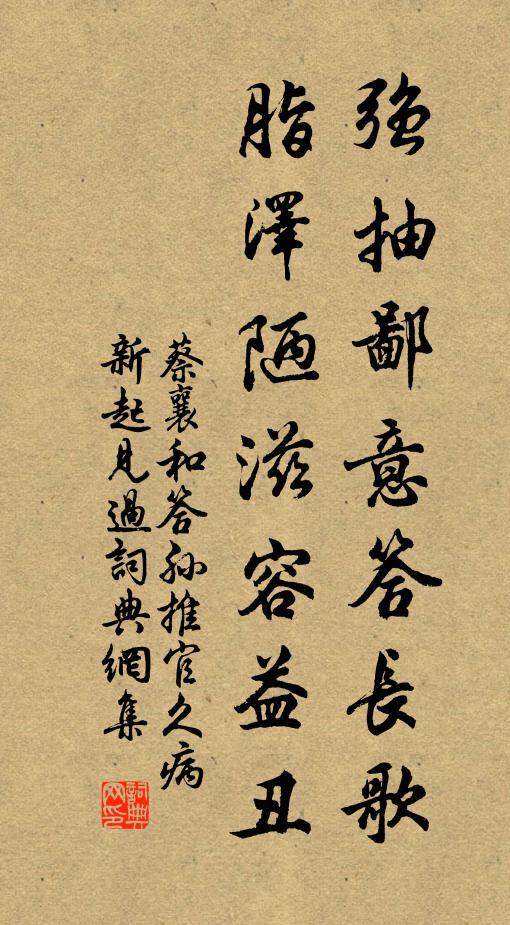 強抽鄙意答長歌
脂澤陋滋容益丑
蔡襄和答孙推官久病
新起見過詞典網集
詞典
网印